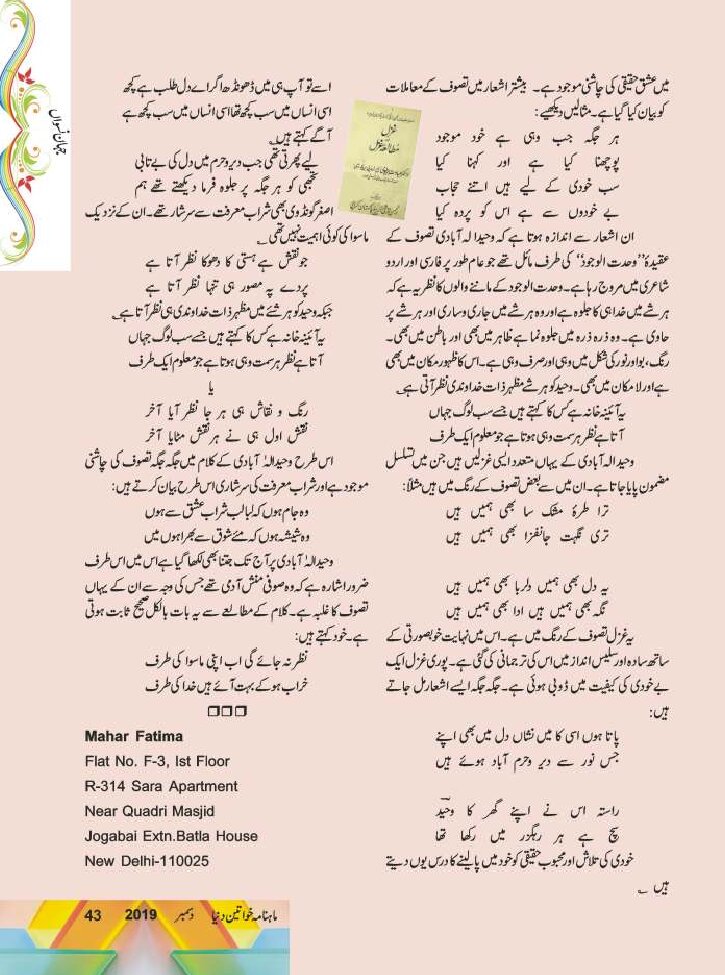 جہان نسواں
میں عشق حقیقی کی چاشنی موجود ہے۔ بیشتر اشعار میں تصوف کے معاملات
کو بیان کیا گیا ہے۔ مثالیں دیکھیے:
ہر جگہ جب وہی ہے خود موجود
پوچھنا کیا ہے اور کہنا کیا
سب خودی کے لیے ہیں اتنے حجاب
بے خودوں سے ہے اس کو پردہ کیا
ان اشعار سے اندازہ ہوتا ہے کہ وحید الہ آبادی تصوف کے
عقیدۂ ”وحدت الوجود“ کی طرف مائل تھے جو عام طور پر فارسی اور اردو
شاعری میں مروج رہا ہے۔ وحدت الوجود کے ماننے والوں کا نظریہ ہے کہ
ہر شے میں خدا ہی کا جلوہ ہے اور وہ ہر شے میں جاری و ساری اور ہر شے پر
حاوی ہے۔ وہ ذرہ ذرہ میں جلوہ نما ہے ظاہر میں بھی اور باطن میں بھی۔
رنگ، بو اور نور کی شکل میں وہی اور صرف وہی ہے۔ اس کا ظہور مکان میں بھی
ہے اور لا مکان میں بھی۔ وحید کو ہر شے مظہر ذات خداوندی نظر آتی ہے۔
یہ آئینہ خانہ ہے کس کا کہتے ہیں جسے سب لوگ جہاں
آتا ہے نظر ہر سمت وہی ہوتا ہے جو معلوم ایک طرف
وحید الہ آبادی کے یہاں متعدد ایسی غزلیں ہیں جن میں تسلسل
مضمون پایا جاتا ہے۔ ان میں سے بعض تصوف کے رنگ میں ہیں مثلاً:
ترا طرۂ مشک سا بھی ہمیں ہیں
تری نگہت جانفزا بھی ہمیں ہیں
یہ دل بھی ہمیں دلربا بھی ہمیں ہیں
نگہ بھی ہمیں ہیں ادا بھی ہمیں ہیں
یہ غزل تصوف کے رنگ میں ہے۔ اس میں نہایت خوبصورتی کے
ساتھ سادہ اور سلیس انداز میں اس کی ترجمانی کی گئی ہے۔ پوری غزل ایک
بے خودی کی کیفیت میں ڈوبی ہوئی ہے۔ جگہ جگہ ایسے اشعار مل جاتے
ہیں:
پاتا ہوں اسی کا میں نشاں دل میں بھی اپنے
جس نور سے دیر و حرم آباد ہوئے ہیں
راستہ اس نے اپنے گھر کا وحید
سچ ہے ہر رہگزر میں رکھا تھا
خودی کی تلاش اور محبوب حقیقی کو خود میں پا لینے کا درس یوں دیتے
ہیں ؎
اسے تو آپ ہی میں ڈھونڈھ اگر اے دل طلب ہے کچھ
اسی انساں میں سب کچھ تھا اسی انساں میں سب کچھ ہے
آگے کہتے ہیں ؎
لیے پھرتی تھی جب دیر و حرم میں دل کی بے تابی
تجھی کو ہر جگہ پر جلوہ فرما دیکھتے تھے ہم
اصغر گونڈوی بھی شراب معرفت سے سرشار تھے۔ ان کے نزدیک
ماسوا کی کوئی اہمیت نہیں تھی ؎
جو نقش ہے ہستی کا دھوکا نظر آتا ہے
پردے پہ مصور ہی تنہا نظر آتا ہے
جبکہ وحید کو ہر شئے میں مظہر ذات خداوندی ہی نظر آتا ہے ؎
یہ آئینہ خانہ ہے کس کا کہتے ہیں جسے سب لوگ جہاں
آتا ہے نظر ہر سمت وہی ہوتا ہے جو معلوم ایک طرف
یا
رنگ و نقاش ہی ہر جا نظر آیا آخر
نقش اول ہی نے ہر نقش مٹایا آخر
اس طرح وحید الہٰ آبادی کے کلام میں جگہ جگہ تصوف کی چاشنی
موجود ہے اور شراب معرفت کی سرشاری اس طرح بیان کرتے ہیں:
وہ جام ہوں کہ لبالب شراب عشق سے ہوں
وہ شیشہ ہوں کہ مئے شوق سے بھرا ہوں میں
وحید الہٰ آبادی پر آج تک جتنا بھی لکھا گیا ہے اس میں اس طرف
ضرور اشارہ ہے کہ وہ صوفی منش آدمی تھے جس کی وجہ سے ان کے یہاں
تصوف کا غلبہ ہے۔ کلام کے مطالعے سے یہ بات بالکل صحیح ثابت ہوتی
ہے۔ خود کہتے ہیں:
نظر نہ جائے گی اب اپنی ماسوا کی طرف
خراب ہو کے بہت آئے ہیں خدا کی طرف
Mahar Fatima
Flat No. F-3, Ist Floor
R-314 Sara Apartment
Near Quadri Masjid
Jogabai Extn.Batla House
New Delhi-110025
ماہنامہ خواتین دنیا دسمبر 2019 43